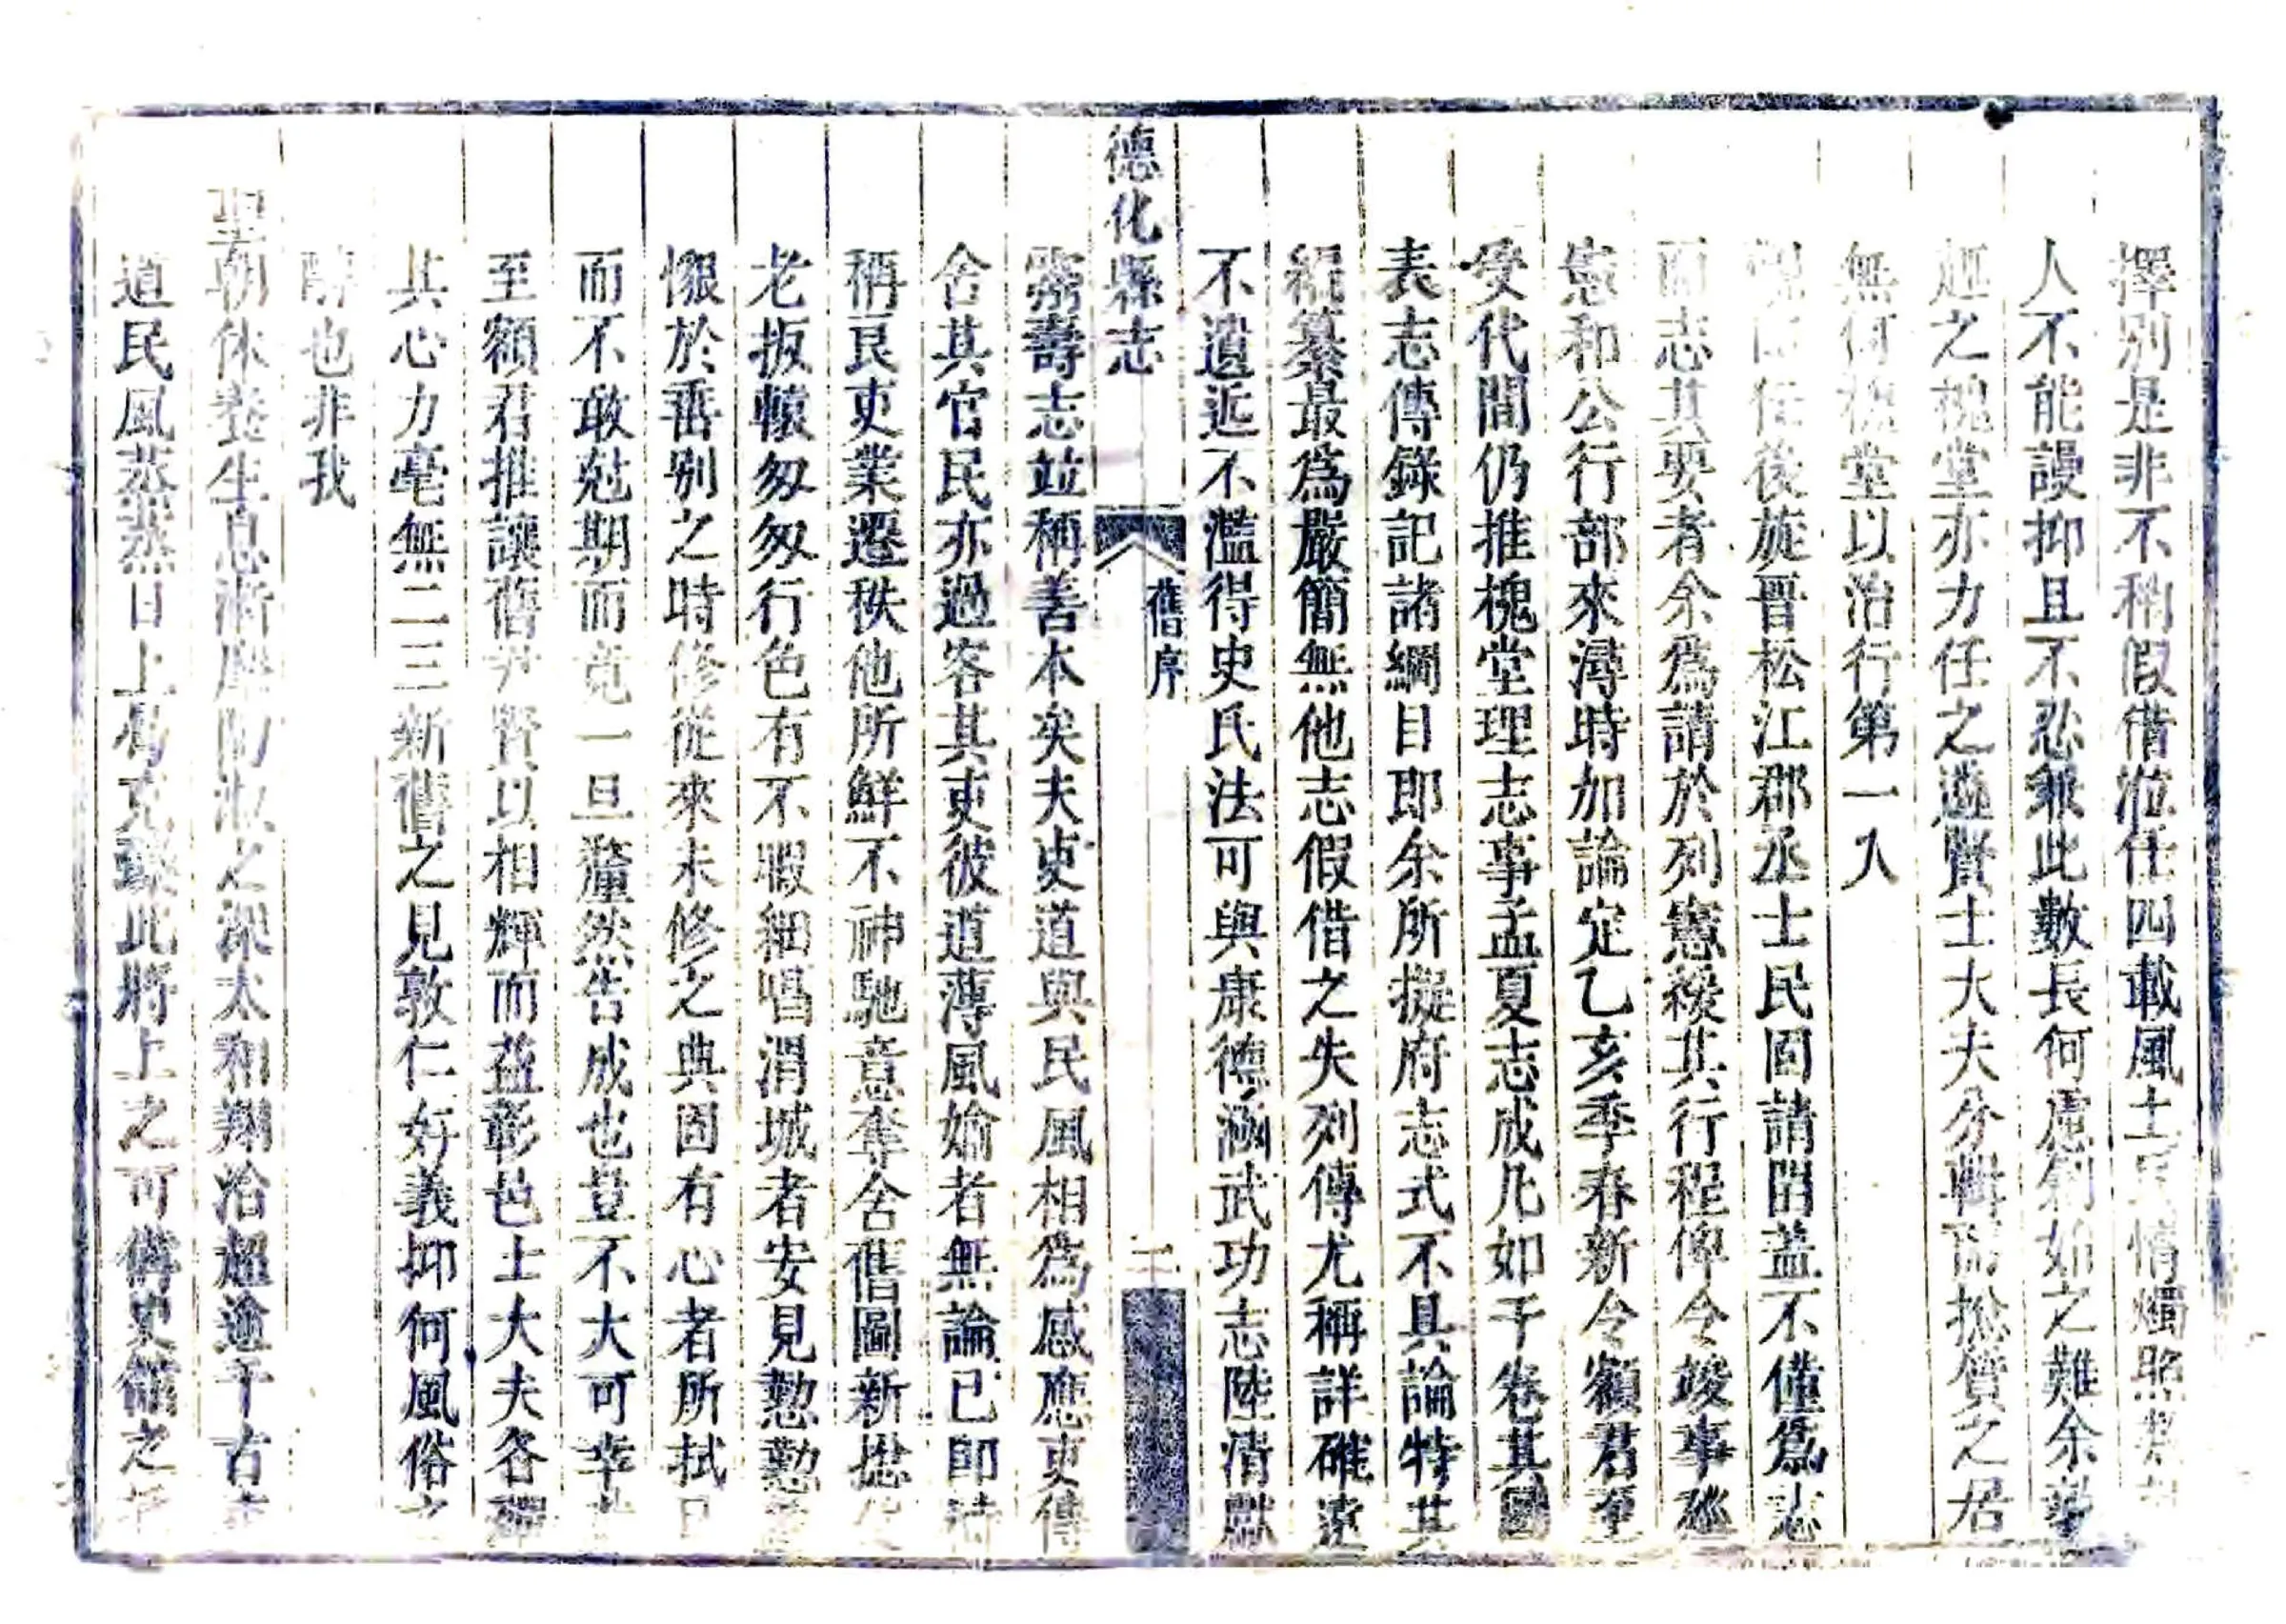 擇別是非不稍假借涖任四載風土民情燭照
人不能謾抑且不忍欺此數長何慮創始之難余
之槐堂亦力任之遴賢士大夫分輯而捴質之君
無何槐堂以治行第一入
任後旋晋松江郡丞士民固請留盖不僅爲志
而志其要者余爲請於列憲緩其行程俾令竣事
憲和公行部來潯時加論定乙亥季春新令額君
受代間仍推槐堂理志事孟夏志成凡如干卷其圖
表志傳錄記諸綱目即余所擬府志式不具論特其
纂最爲嚴簡無他志假借之失列傳尤稱詳確遠
不遺近不濫得史氏法可與康德涵武功志陸清獻
德化縣志
舊序
二
靈壽志竝稱善本矣夫吏道與民風相爲感應吏傳
舍其官民亦過客其吏彼道薄風媮者無論已即
稱良吏業遷秩他所鮮不神馳意奪舍舊圖新捴
老扳轅匆匆行色有不暇細唱渭城者安見懃懃
懇於臨別之時修從來未修之典固有心者所拭
而不敢尅期而竟一旦釐然告成也豈不大可幸
至額君推讓舊尹賢以相輝而益彰邑士大夫各殫
其心力毫無二三新舊之見敦仁好義抑何風俗
醇也非我
聖朝休養生息漸摩陶淑之深太和翔洽超逾千古
道民風蒸蒸日上曷克臻此將上之可備史館之